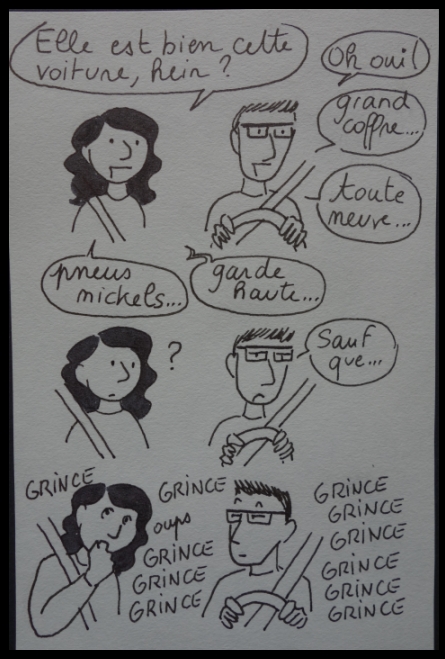 Elle est bien cette
voiture, hein ?
Oh oui !
grand
coffre...
toute
neuve...
pneus
nickels...
garde
haute...
?
Sauf
que...
GRINCE
GRINCE
oups
GRINCE
GRINCE
GRINCE
GRINCE
GRINCE
GRINCE
GRINCE
GRINCE
GRINCE